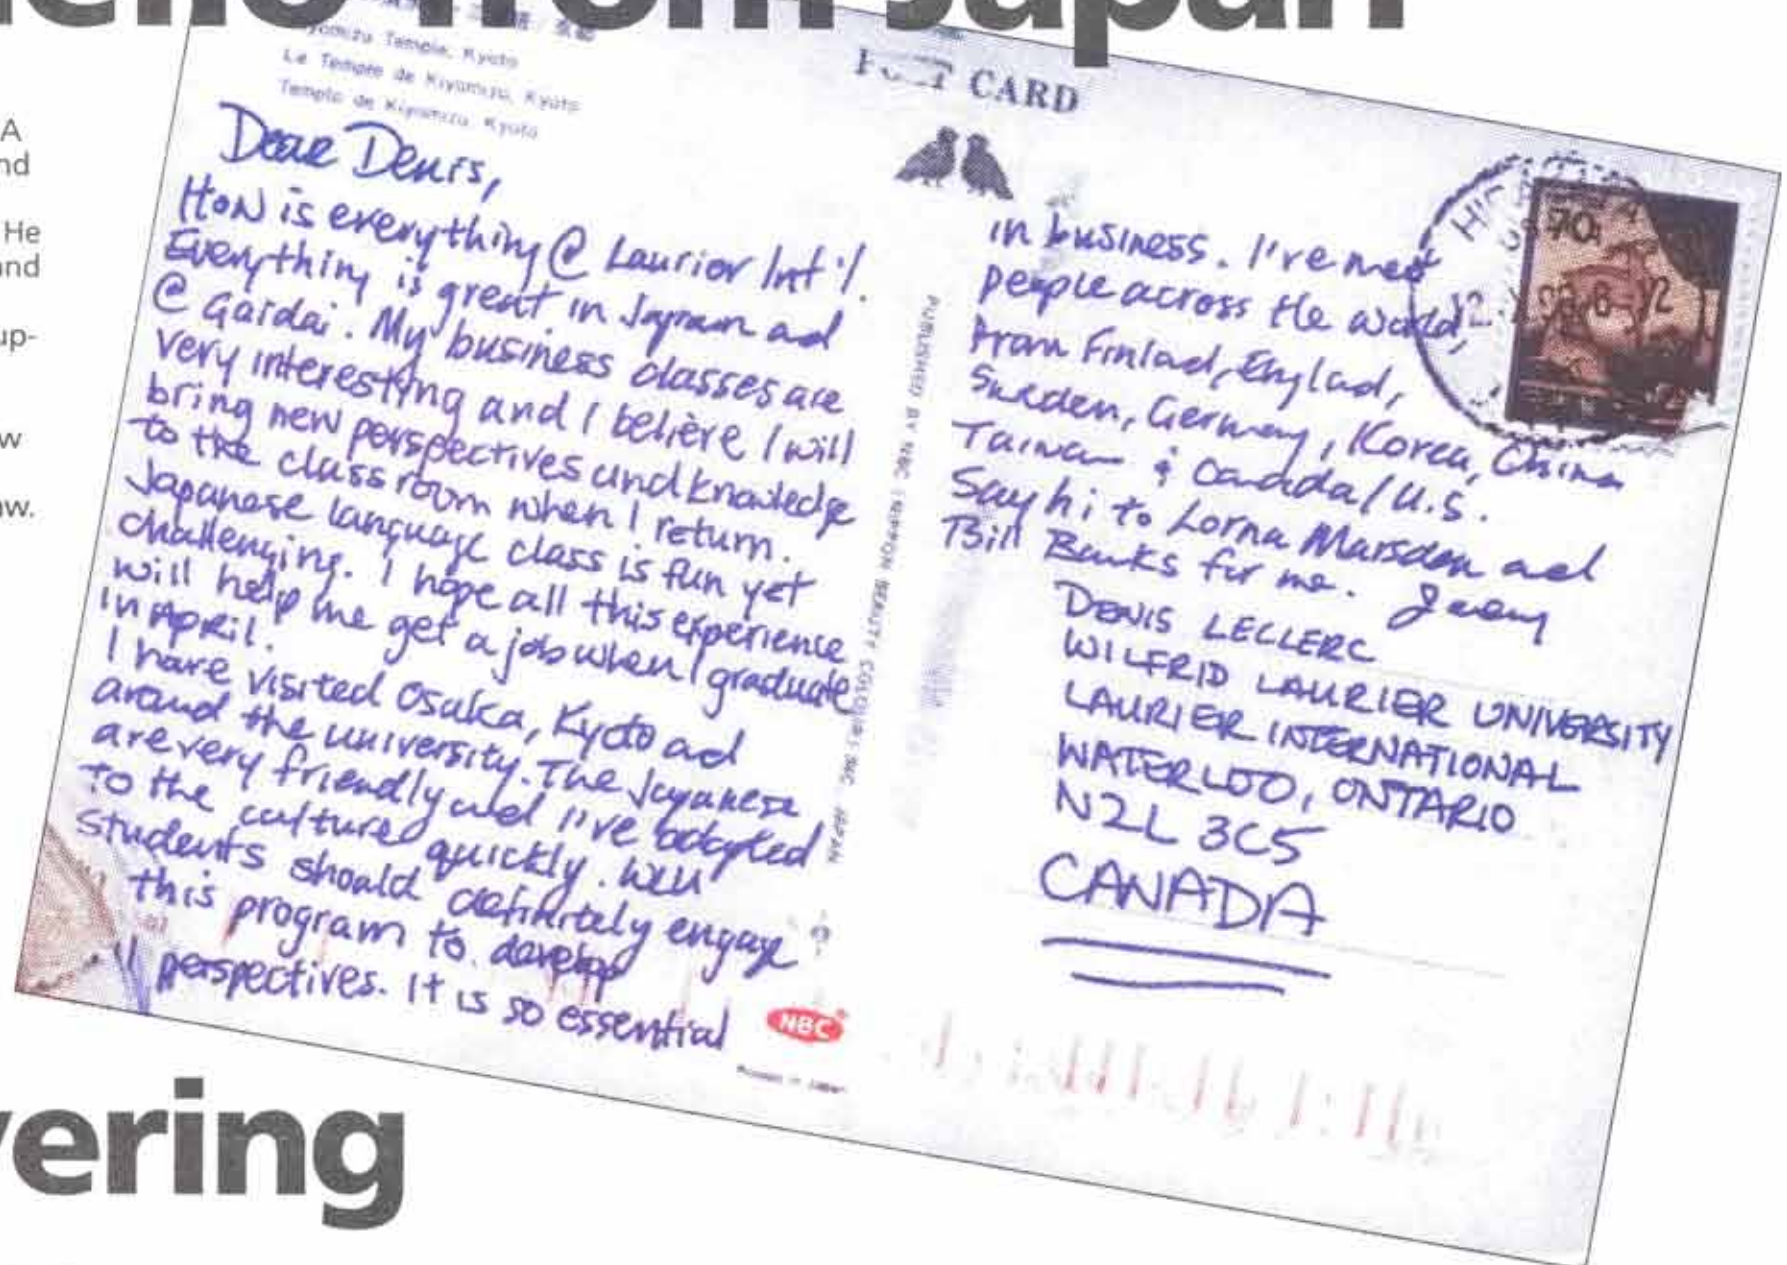 from Japan
A
nd
He
and
up-
w
aw.
Temple, Kyoto
Le Temple de Kiyomizu, Kyoto
Templo de Kiyomizu, Kyoto
POST CARD
Dear Denis,
How is everything @ Laurier Int'l.
Everything is great in Japan ad
@ Gaidai. My business classes are
very interesting and I believe I will
bring new perspectives and knowledge
to the class room when I return.
Japanese language class is fun yet
challenging. I hope all this experience
will help me get a job when I graduate
in April.
I have visited Osaka, Kyoto ad
around the university. The Japanese
are very friendly and I've adapted
to the culture quickly. WLU
students should definitely engage
this program to develop
perspectives. It is so essential
NBC
PUBLISHED BY NBC (NIPPON BEAUTY COLOUR) INC. JAPAN
in business. I've meet
people across the world,
from Finlad, Englad,
Sweden, Germany, Korea, China
Taiwan & Canada/U.S.
Say hi to Lorna Marsden and
Bill Banks for me. Jeremy
70
DENIS LECLERC
WILFRID LAURIER UNIVERSITY
LAURIER INTERNATIONAL
WATERLOO, ONTARIO
N2L 3C5
CANADA
vering